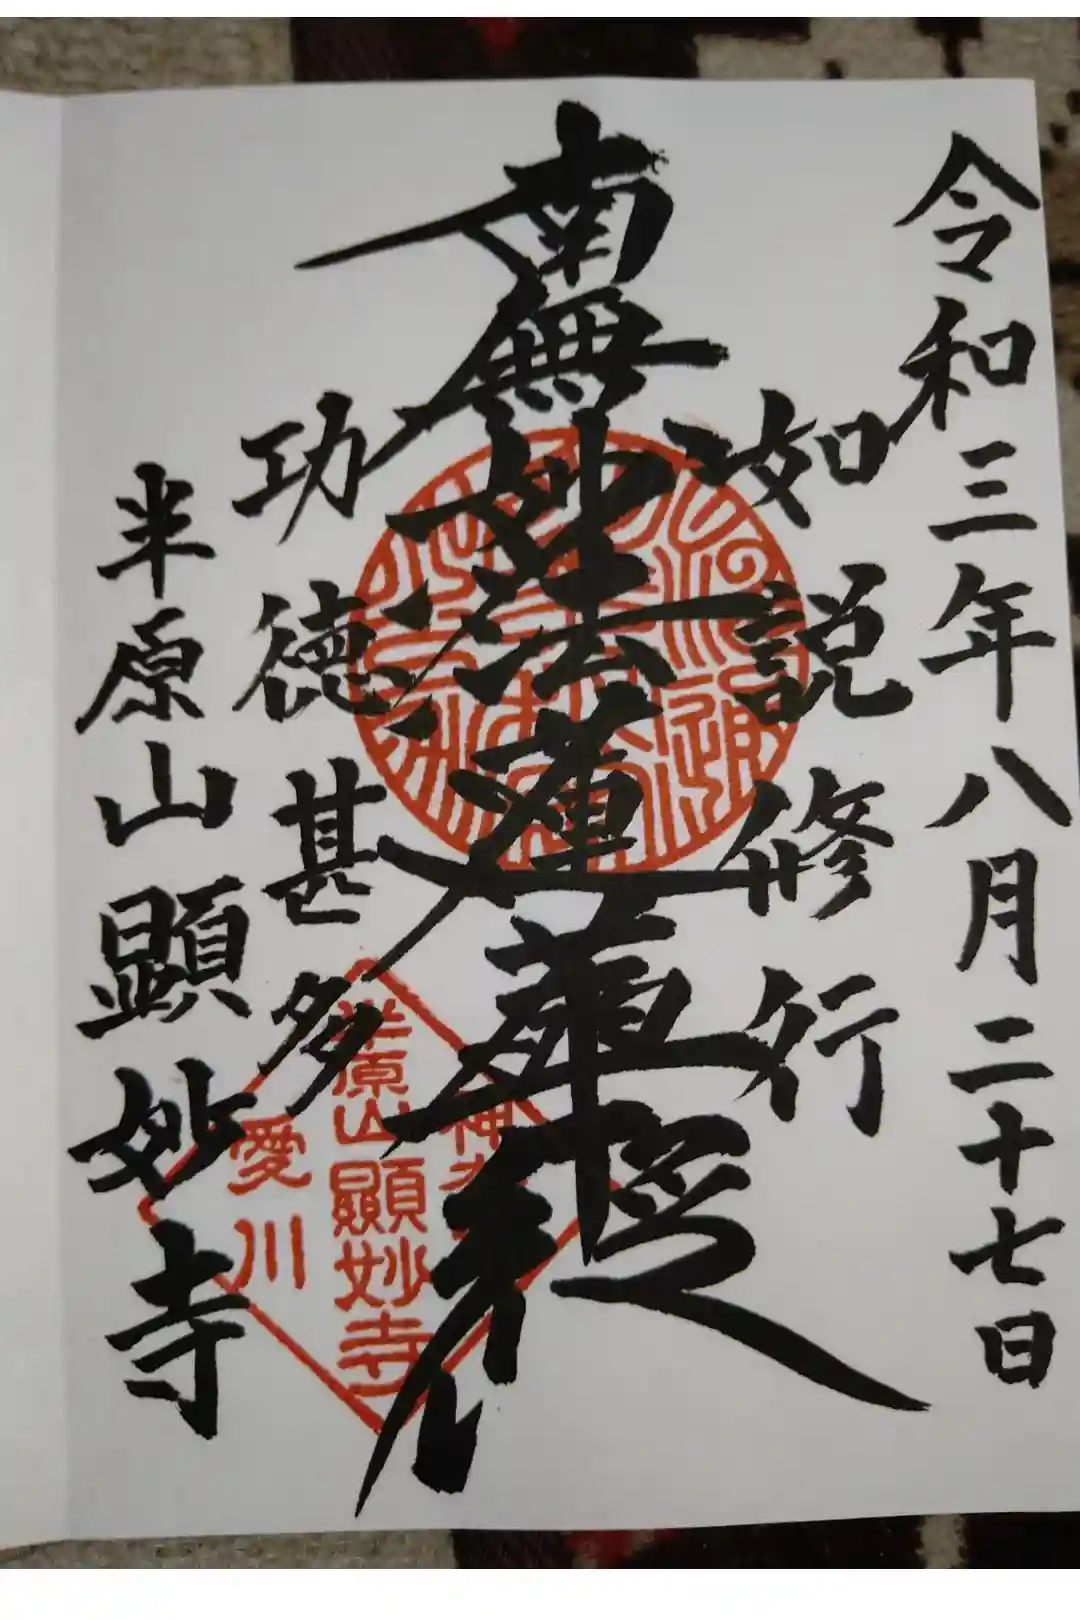 令和三年八月二十七日
如説修行
南無妙法蓮華経
功徳甚多
半原山顯妙寺
半原山顯妙寺
愛川